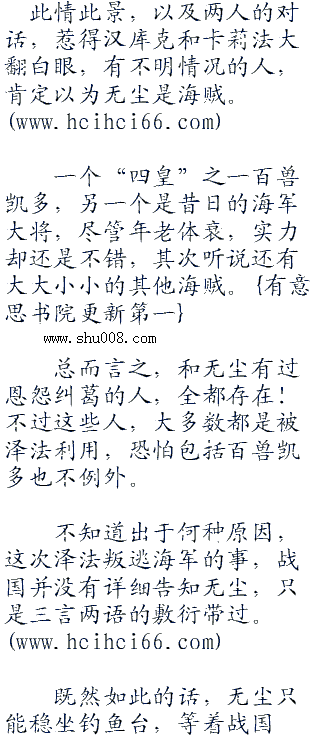 此情此景，以及两人的对
话，惹得汉库克和卡莉法大
翻白眼，有不明情况的人，
肯定以为无尘是海贼。
(www.hcihci66.com)
一个“四皇”之一百兽
凯多，另一个是昔日的海军
大将，尽管年老体衰，实力
却还是不错，其次听说还有
大大小小的其他海贼。{有意
思书院更新第一}
www.shu008.com
总而言之，和无尘有过
恩怨纠葛的人，全都存在！
不过这些人，大多数都是被
泽法利用，恐怕包括百兽凯
多也不例外。
不知道出于何种原因，
这次泽法叛逃海军的事，战
国并没有详细告知无尘，只
是三言两语的敷衍带过。
(www.hcihci66.com)
既然如此的话，无尘只
能稳坐钓鱼台，等着战国